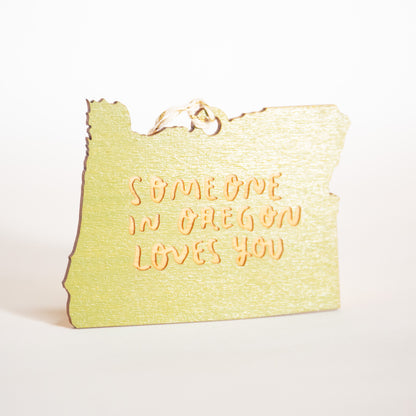 SOMEONE
IN OREGON
LOVES YOU